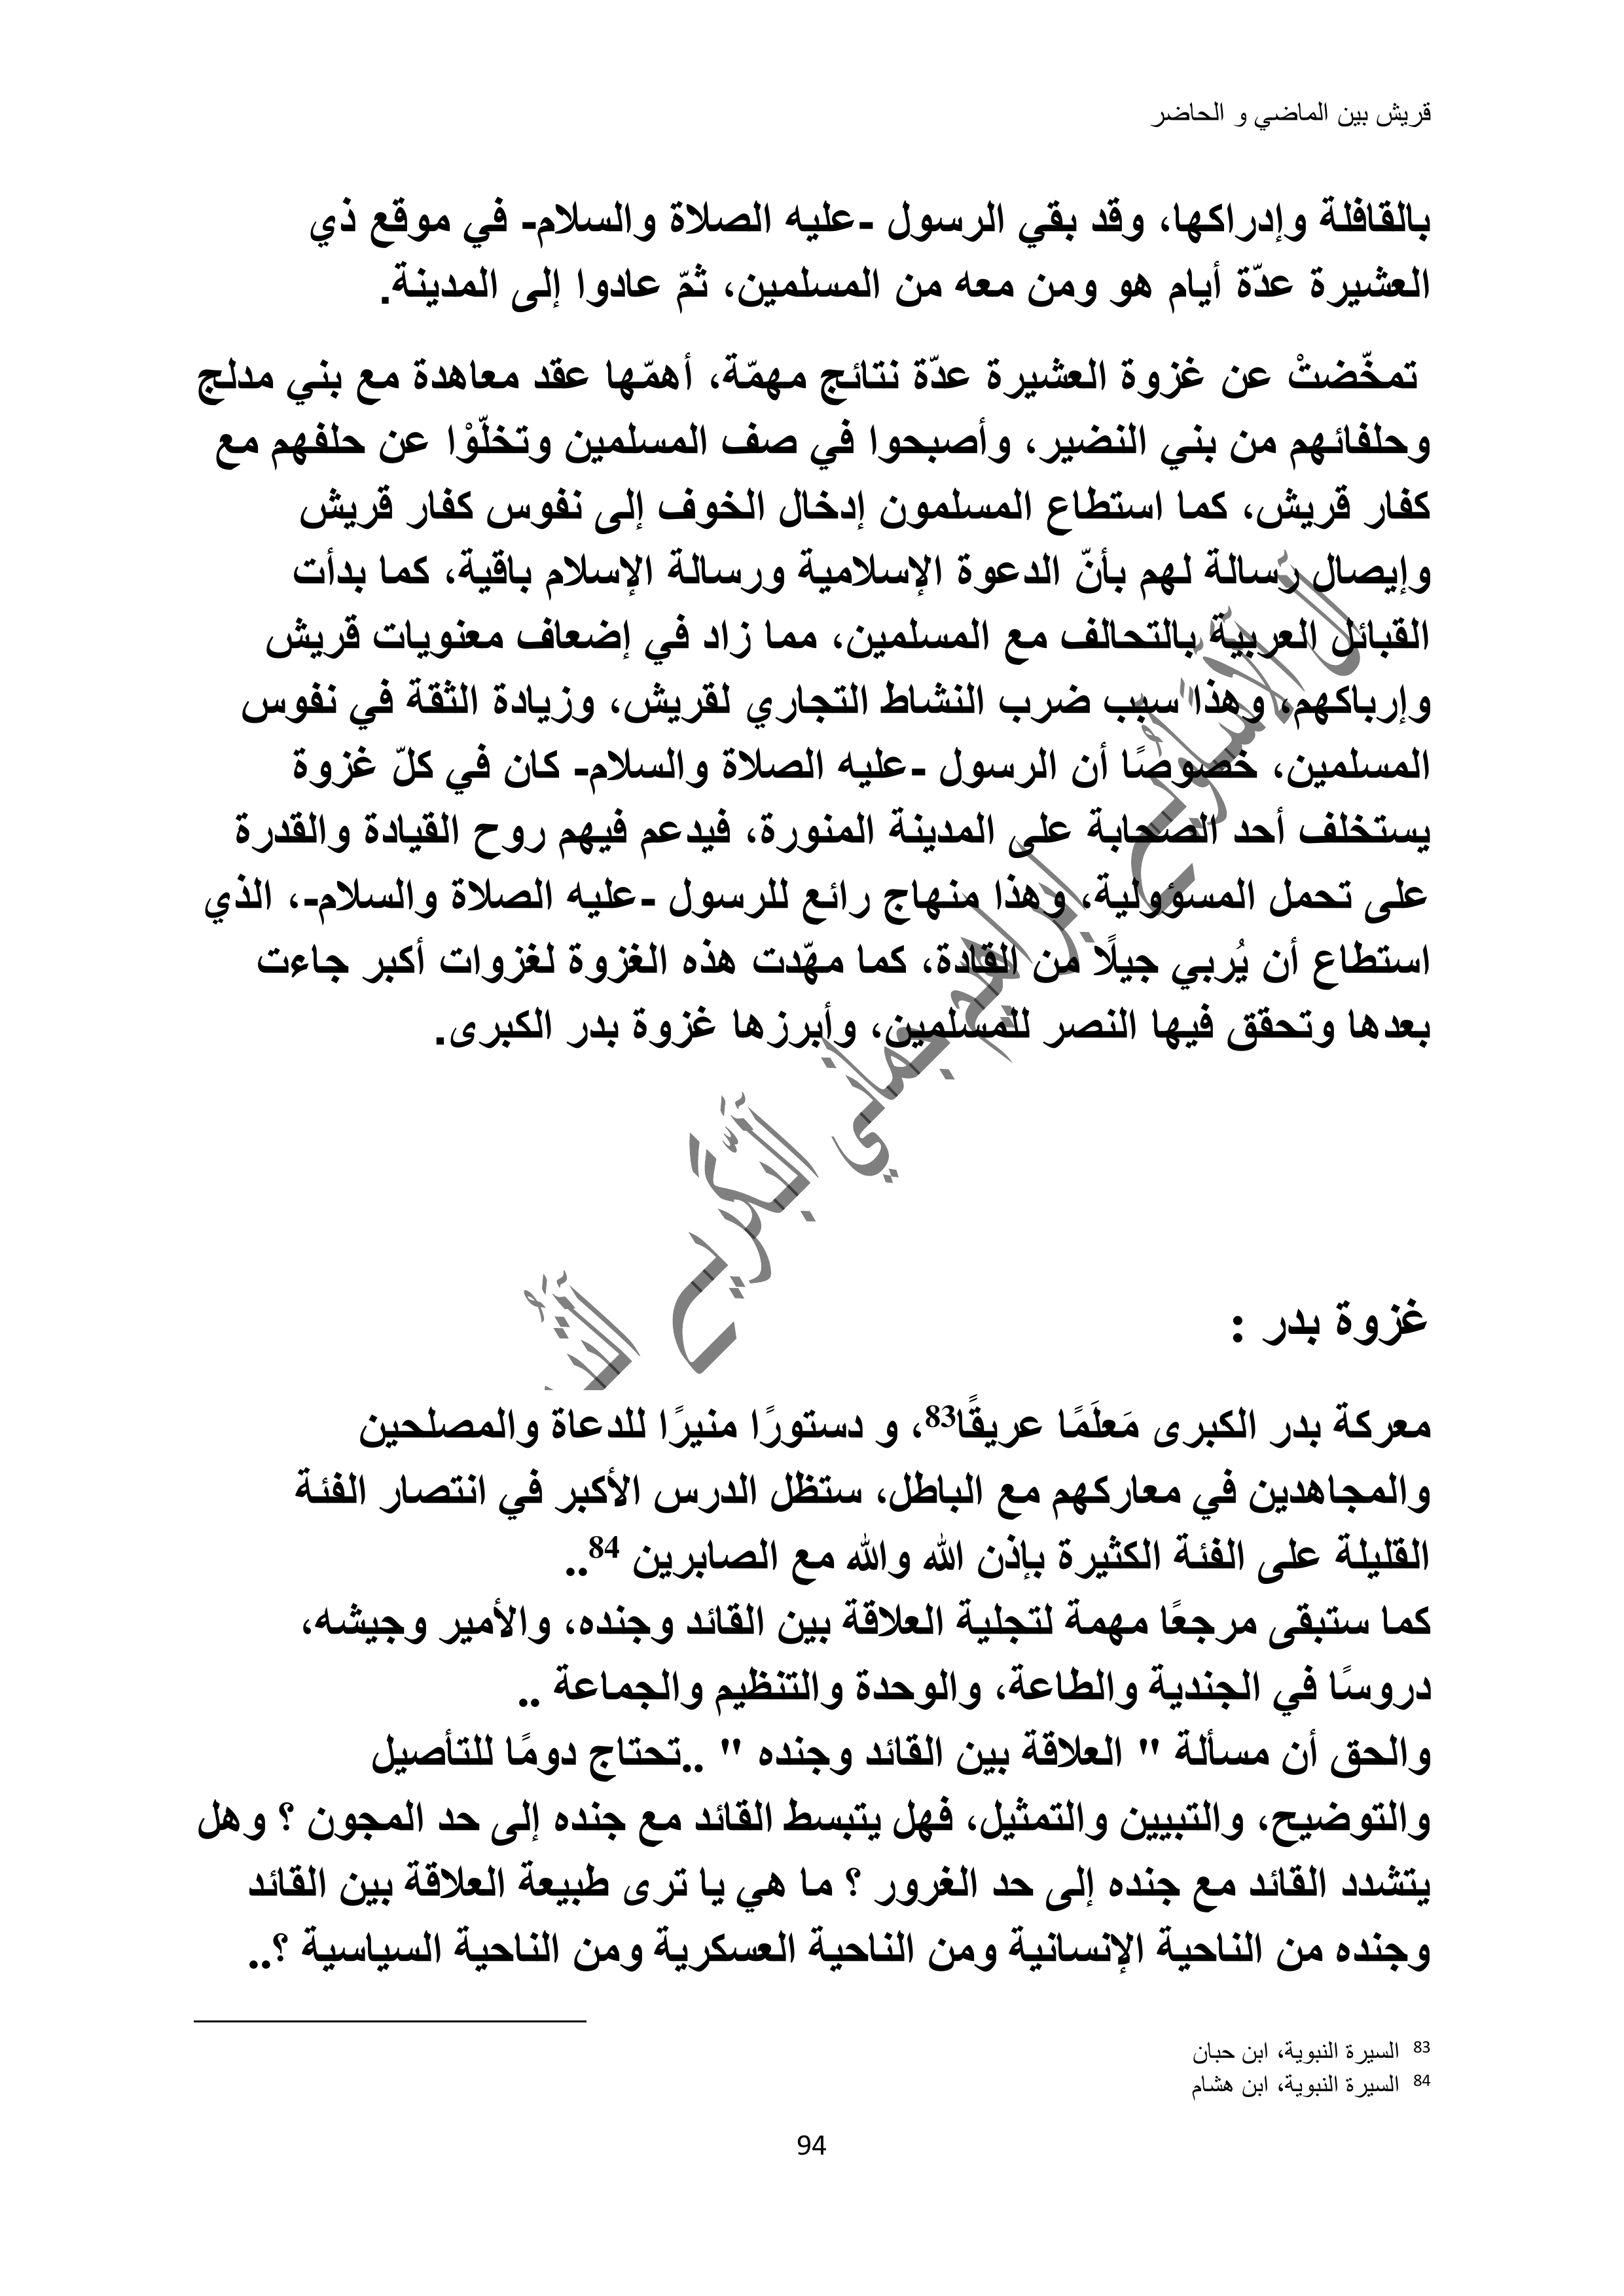 قريش بين الماضي و الحاضر
بالقافلة وإدراكها، وقد بقي الرسول -عليه الصلاة والسلام- في موقع ذي
العشيرة عدّة أيام هو ومن معه من المسلمين، ثمّ عادوا إلى المدينة.
تمخّضتْ عن غزوة العشيرة عدّة نتائج مهمّة، أهمّها عقد معاهدة مع بني مدلج
وحلفائهم من بني النضير، وأصبحوا في صف المسلمين وتخلّوْا عن حلفهم مع
كفار قريش، كما استطاع المسلمون إدخال الخوف إلى نفوس كفار قريش
وإيصال رسالة لهم بأنّ الدعوة الإسلامية ورسالة الإسلام باقية، كما بدأت
القبائل العربية بالتحالف مع المسلمين، مما زاد في إضعاف معنويات قريش
وإرباكهم، وهذا سبب ضرب النشاط التجاري لقريش، وزيادة الثقة في نفوس
المسلمين، خصوصًا أن الرسول -عليه الصلاة والسلام- كان في كلّ غزوة
يستخلف أحد الصحابة على المدينة المنورة، فيدعم فيهم روح القيادة والقدرة
على تحمل المسؤولية، وهذا منهاج رائع للرسول -عليه الصلاة والسلام-، الذي
استطاع أن يُربي جيلًا من القادة، كما مهّدت هذه الغزوة لغزوات أكبر جاءت
بعدها وتحقق فيها النصر للمسلمين، وأبرزها غزوة بدر الكبرى.
غزوة بدر :
معركة بدر الكبرى مَعلَمًا عريقًا83، و دستورًا منيرًا للدعاة والمصلحين
والمجاهدين في معاركهم مع الباطل، ستظل الدرس الأكبر في انتصار الفئة
القليلة على الفئة الكثيرة بإذن الله والله مع الصابرين 84..
كما ستبقى مرجعًا مهمة لتجلية العلاقة بين القائد وجنده، والأمير وجيشه،
دروسًا في الجندية والطاعة، والوحدة والتنظيم والجماعة ..
والحق أن مسألة " العلاقة بين القائد وجنده " ..تحتاج دومًا للتأصيل
والتوضيح، والتبيين والتمثيل، فهل يتبسط القائد مع جنده إلى حد المجون ؟ وهل
يتشدد القائد مع جنده إلى حد الغرور ؟ ما هي يا ترى طبيعة العلاقة بين القائد
وجنده من الناحية الإنسانية ومن الناحية العسكرية ومن الناحية السياسية ؟..
83 السيرة النبوية، ابن حبان
84 السيرة النبوية، ابن هشام
94